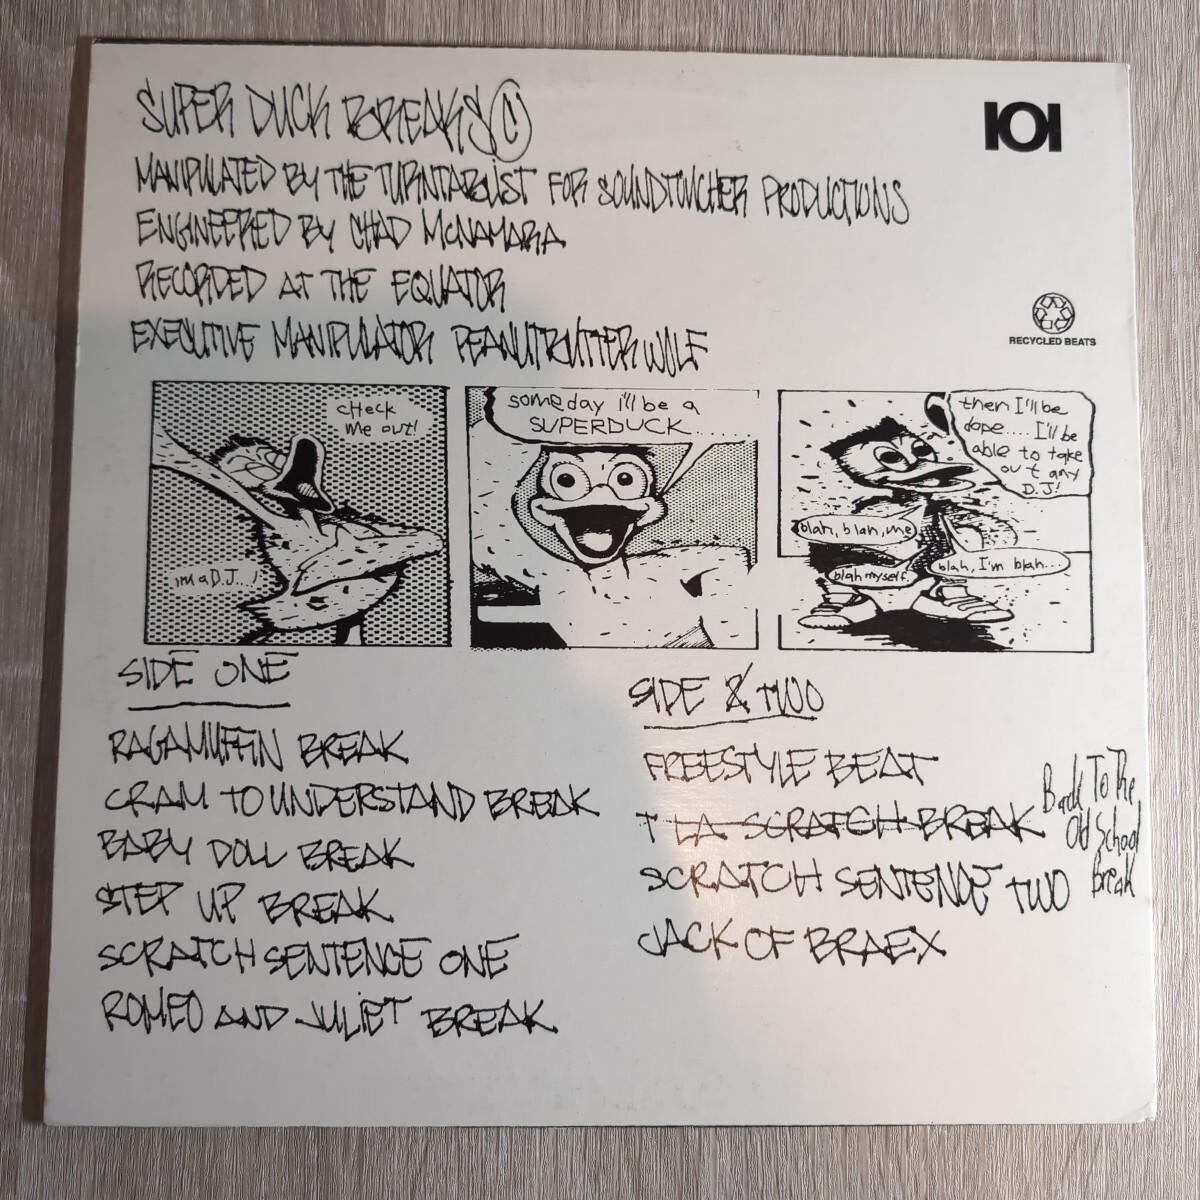 SUPER DUCK BREAKS
IOI
MANIPULATED BY THE TURNTABLIST FOR SOUNDTONCHER PRODUCTIONS
ENGINEERED BY CHAD McNAMARA
RECORDED AT THE EQUATOR
EXECUTIVE MANIPULATOR PEANUTBUTTER WOLF
RECYCLED BEATS
cHeck
me out!
im a D.J...!
someday i'll be a
SUPERDUCK......
then I'll be
dope.... I'll be
able to take
out any
D.J!
blah, blah, me
blah myself.
blah, I'm blah...
SIDE ONE
RAGAMUFFIN BREAK
CRAM TO UNDERSTAND BREAK
BABY DOLL BREAK
STEP UP BREAK
SCRATCH SENTENCE ONE
ROMEO AND JULIET BREAK
SIDE & TWO
FREESTYLE BEAT
T LA SCRATCH BREAK
Back To The
Old School
Break
SCRATCH SENTENCE TWO
JACK OF BRAEX